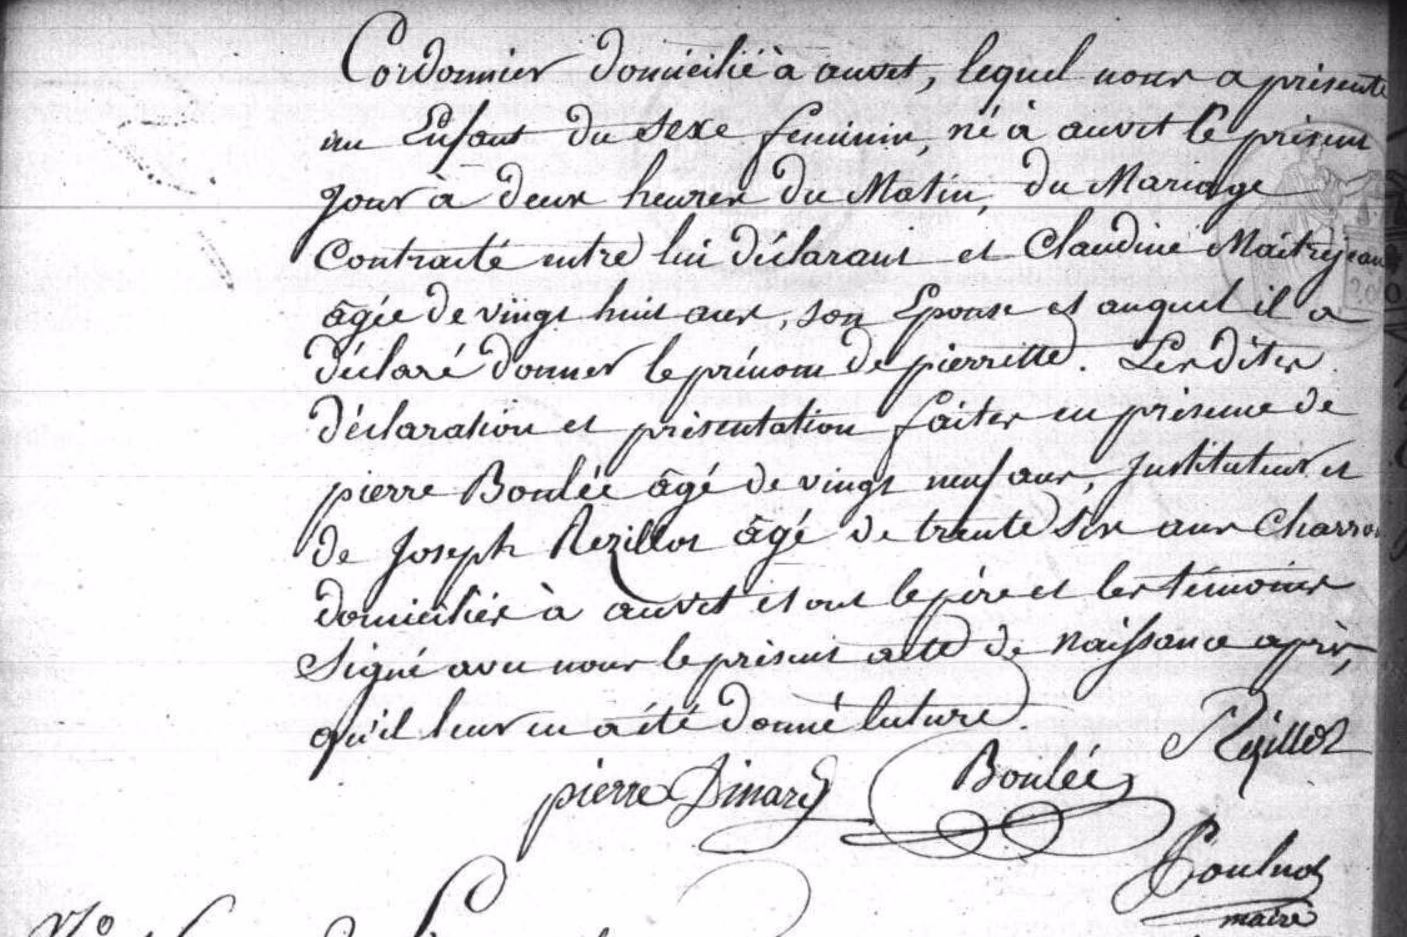 Cordonnier domicilié à auvet, lequel nous a présenté
un Enfant du sexe feminin, né à auvet le présent
jour à deux heures du Matin, du Mariage
Contracté entre lui déclarant et Claudine Maitrejean
âgée de vingt huit ans, son Epouse et auquel il a
déclaré donner le prénom de pierrette. Les dites
déclaration et présentation faites en présence de
pierre Boulée âgé de vingt neuf ans, Instituteur et
de Joseph Rezillot âgé de trente six ans Charron
domiciliés à auvet et ont le père et les témoins
Signé avec nous le présent acte de naissance après,
qu'il leur en a été donné lecture.
Rezillot
pierre Dinard Boulée
maire